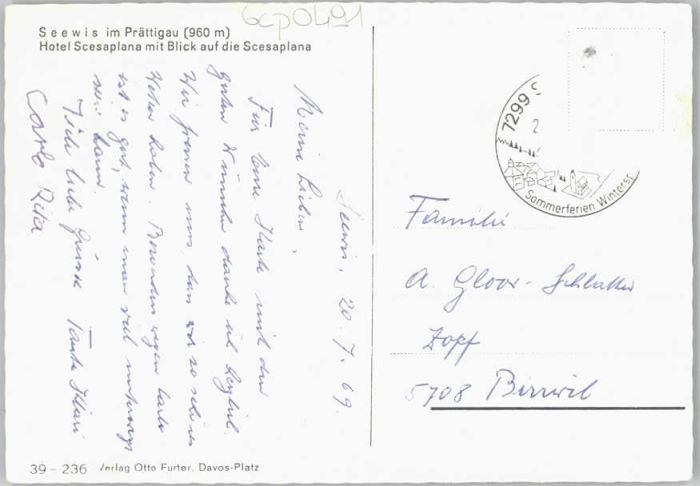 6cp0491
Seewis im Prättigau (960 m)
Hotel Scesaplana mit Blick auf die Scesaplana
Seewis, 20. 7. 69.
Meine Lieben,
Für eure Karte mit den
guten Wünschen danke ich herzlich.
Wir freuen uns, dass wir so schönes
Wetter haben. Besonders wegen Carlo
ist es gut, wenn man viel unterwegs
sein kann.
liebe Grüsse Tante
Carlo Rita
7299 S
2
Sommerferien Winters
Familie
A. Gloor-Schlatter
Zopf
5708 Birrwil
39 - 236 Verlag Otto Furter, Davos-Platz